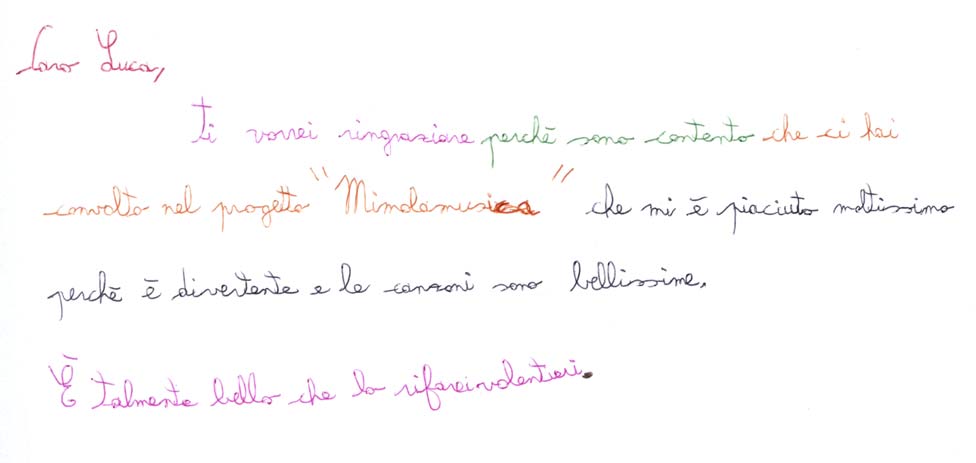 Caro Luca,
ti vorrei ringraziare perchē sono contento che ci hai
convolto nel progetto "Mimolamusica" che mi ē piaciuto moltissimo
perchē ē divertente e le canzoni sono bellissime.
Ē talmente bello che lo rifarei volentieri.